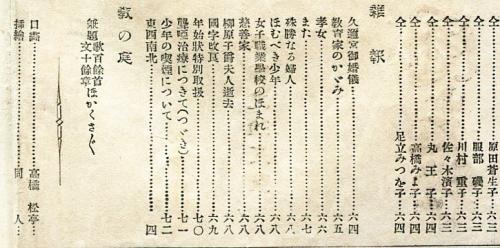 仝……原田蒼生子……六三
仝……服部磯子……六三
仝……川村重子……六三
仝……佐々木濱子……六三
仝……丸王子……六四
仝……高橋みよ子……六四
仝……足立みつを子……六四
雜報
久邇宮御婚儀……六四
教育家のかゞみ……六五
孝女……六六
また……六七
殊勝なる婦人……六八
ほむべき少年……六八
女子職業學校のほまれ……六八
慈善家……六八
柳原子爵夫人逝去……六八
國字改良……六九
年始狀特別取扱……七〇
聾啞治療につきて(つゞき)……七一
少年の喫煙について……七二
東西南北……四
教の庭
兼題歌百餘首
文十餘章
ほかくさ〴〵
口繪……高橋松亭
挿繪……同人